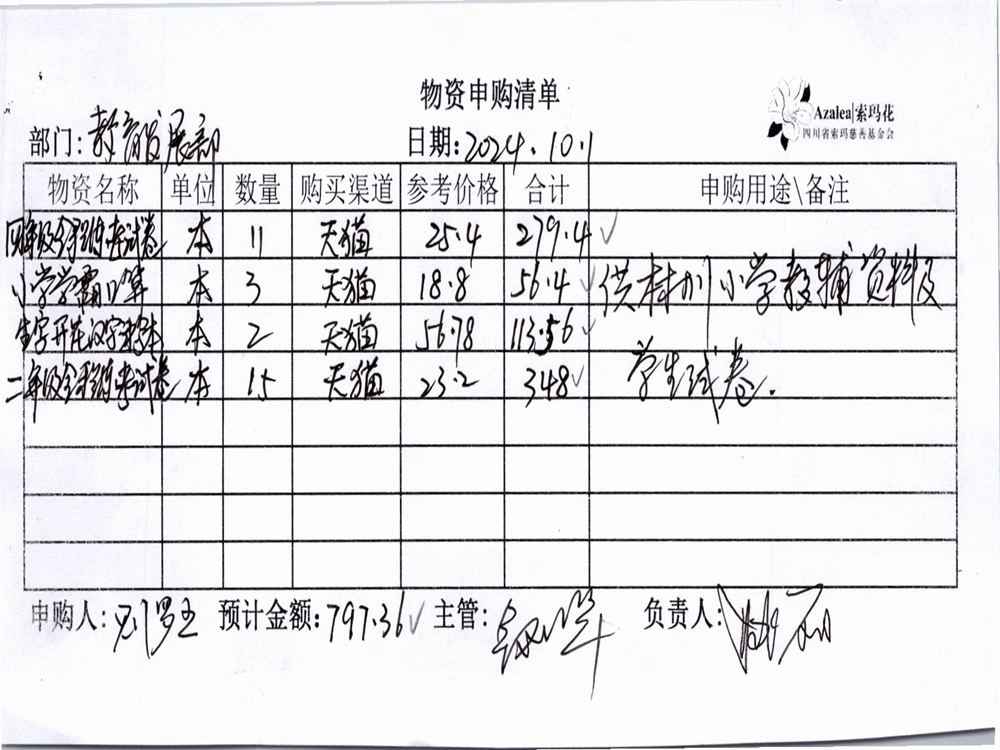 物资申购清单
Azalea|索玛花
四川省索玛慈善基金会
部门:教育发展部
日期:2024.10.1
物资名称 单位 数量 购买渠道 参考价格 合计 申购用途\备注
四年级全程培优试卷 本 11 天猫 25.4 279.4
小学学霸口算 本 3 天猫 18.8 56.4 供 小学教辅资料及
生字开花汉字 本 2 天猫 56.78 113.56
二年级全程培优试卷 本 15 天猫 23.2 348 学生试卷.
申购人: 预计金额:797.36 主管: 负责人: